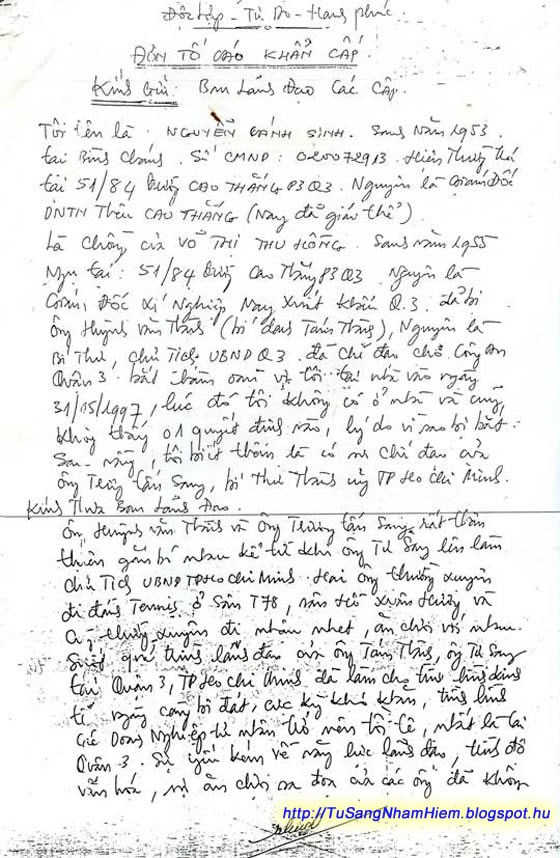 Độc Lập - Tự Do - Hạnh phúc.
ĐƠN TỐ CÁO KHẨN CẤP.
Kính Gửi: Ban Lãnh Đạo Các Cấp.
Tôi tên là: NGUYỄN CẢNH SINH. Sanh Năm 1953.
tại Bình Chánh. Số CMND: 020072913. Hiện Thường Trú
tại 51/84 Đường CAO THẮNG P3 Q3. Nguyên là Giám Đốc
DNTN Thêu CAO THẮNG (Nay đã giải thể).
Là chồng của VÕ THỊ THU HỒNG. Sanh năm 1955
Ngụ tại: 51/84 Đường Cao Thắng P3 Q3. Nguyên là
Giám Đốc Xí Nghiệp May Xuất Khẩu Q.3. đã bị
Ông Huỳnh văn Thành (bí danh Tám Thàng), Nguyên là
Bí Thư, chủ Tịch UBND Q3. đã chỉ đạo cho Công An
Quận 3. bắt vợ tôi tại nhà vào ngày
31/05/1997, lúc đó tôi không có ở nhà và cũng
không thấy 01 quyết định nào, lý do vì sao bị bắt.
Sau này, tôi biết thêm là có sự chỉ đạo của
Ông Trương Tấn Sang, bí thư Thành ủy TP Hồ Chí Minh.
Kính Thưa Ban Lãnh Đạo.
Ông Huỳnh văn Thành và Ông Trương tấn Sang rất thân
thiện gắn bó nhau kể từ khi ông Tư Sang lên làm
chủ Tịch UBND TP Hồ chí Minh. Hai Ông thường xuyên
đi đánh Tennis ở Sân T78, sân Hồ Xuân Hương và
cũng thường xuyên đi nhậu nhẹt, ăn chơi với nhau.
Suốt quá trình lãnh đạo của ông Tám Thàng, ông Tư Sang
tại Quận 3, TP Hồ chí Minh đã làm cho tình hình kinh
tế ngày càng bi đát, cực kỳ khó khăn, tình hình
các Doanh Nghiệp tư nhân trở nên tồi tệ, nhất là tại
Quận 3. Sự yếu kém về năng lực lãnh đạo, trình độ
văn hóa, sự ăn chơi sa đọa của các ông đã không
http://TuSangNhamHiem.blogspot.hu